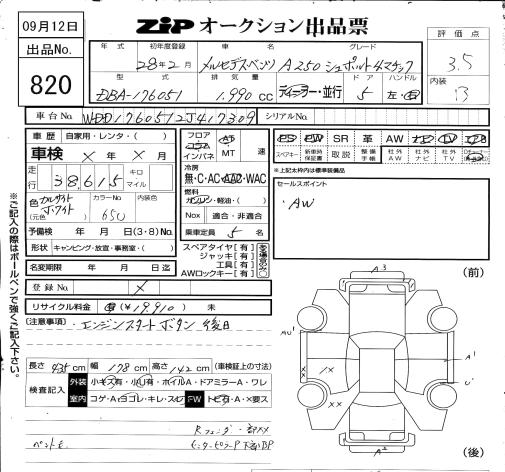 09月12日
ZIP オークション出品票
出品No.
820
年式 初年度登録 車名 グレード
28年2月 メルセデスベンツ A250シュポルト4マチック
型式 排気量 ドア ハンドル
DBA-176051 1,990 cc ディーラー・並行 5 左・右
評価点
3.5
内装
B
車台No. WDD1760512J417309 シリアルNo.
車歴 自家用・レンタ・( )
車検 × 年 × 月
走行 38,615 キロ マイル
色 (元色) カルサイトホワイト カラーNo. 650
予備検 年 月 日(3・8)No.
形状 キャンピング・放宣・事務室・( )
名変期限 年 月 日迄
登録No. ×
リサイクル料金 有(¥19,910) 未
フロア コラム インパネ AT MT 速
冷房
無・C・AC・AAC・WAC
燃料
ガソリン・軽油・( )
Nox 適合・非適合
乗車定員 5 名
スペアタイヤ[有]
ジャッキ[有]
工具[有]
AWロックキー[有]
ある場合のみ○
PS PW SR 革 AW ナビ TV エアB
スペアキー 新車時保証書 取説 整備手帳 社外AW 社外ナビ 社外TV
※上記太枠内は標準装備品
セールスポイント
・AW
(注意事項) エンジンスタートボタン 後日
長さ 435 cm 幅 178 cm 高さ 142 cm (車検証上の寸法)
検査記入 外装 小キズ有・小凹有・ホイルA・ドアミラーA・ワレ
室内 コゲ・A・ヨゴレ・キレ・スレ FW トビ石・A・×要ス
ペントモ
※ご記入の際はボールペンで強くご記入下さい。
(前)
A3
AU1
A1
××
1×
××
U1
A2
(後)